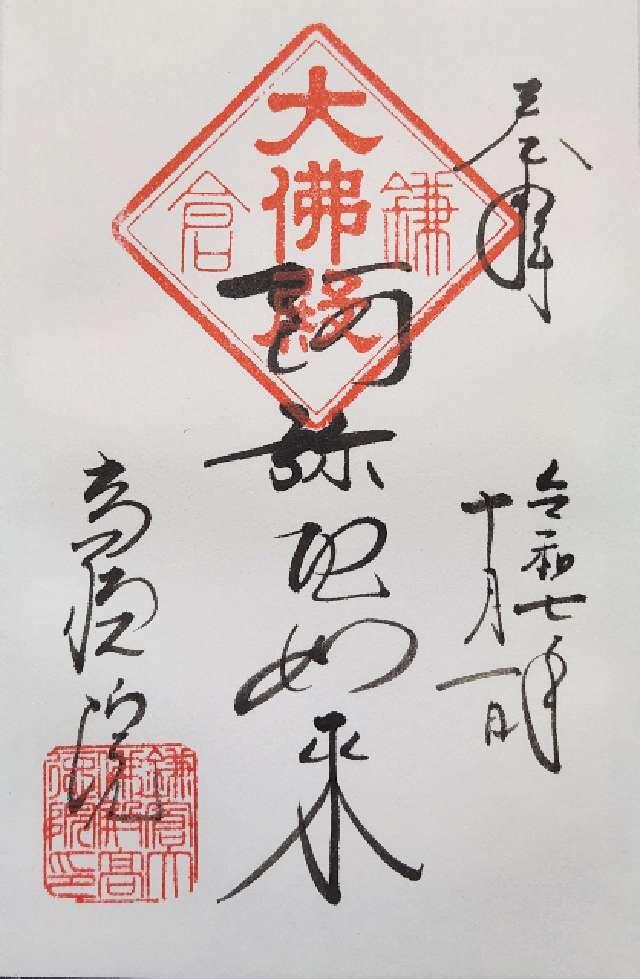 奉拝
令和七年
十月一日
鎌倉
大佛殿
阿弥陀如来
高徳院
鎌倉大
佛殿高
徳院印